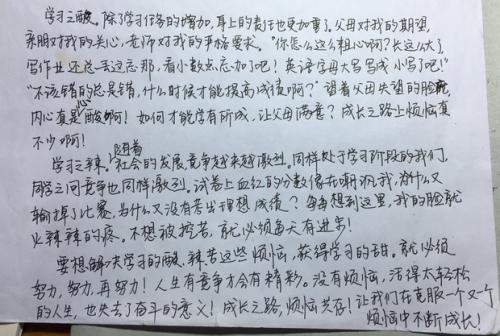 学习三酸。除了学习任务的增加,耳上的责任也更加重了。父母对我的期望,
亲朋对我的关心,老师对我的严格要求。"你怎么这么粗心啊?长这么大了
写作业还总丢这忘那,看小数点忘加了吧!英语字母大写写成小写了吧!"
"不该错的总是错,什么时候才能提高成绩啊?"望着父母失望的脸庞,
内心真是心酸啊!如何才能学有所成,让父母满意?成长之路上烦恼真
不少啊!
学习之辣。随着社会的发展竞争越来越激烈。同样处于学习阶段的我们,
同学之间竞争也同样激烈。试卷上血红的分数像在嘲讽我,为什么又
输掉了比赛,为什么又没有考出理想成绩?每每想到这里,我的脸就
火辣辣的疼。不想被挖苦,就必须每天有进步!
要想解决学习的酸、辣、苦这些烦恼,获得学习的甜。就必须
努力,努力,再努力!人生有竞争才会有精彩。没有烦恼,活得太轻松
的人生,也失去了奋斗的意义!成长之路,烦恼共存!让我们在克服一个又一个
烦恼中不断成长!